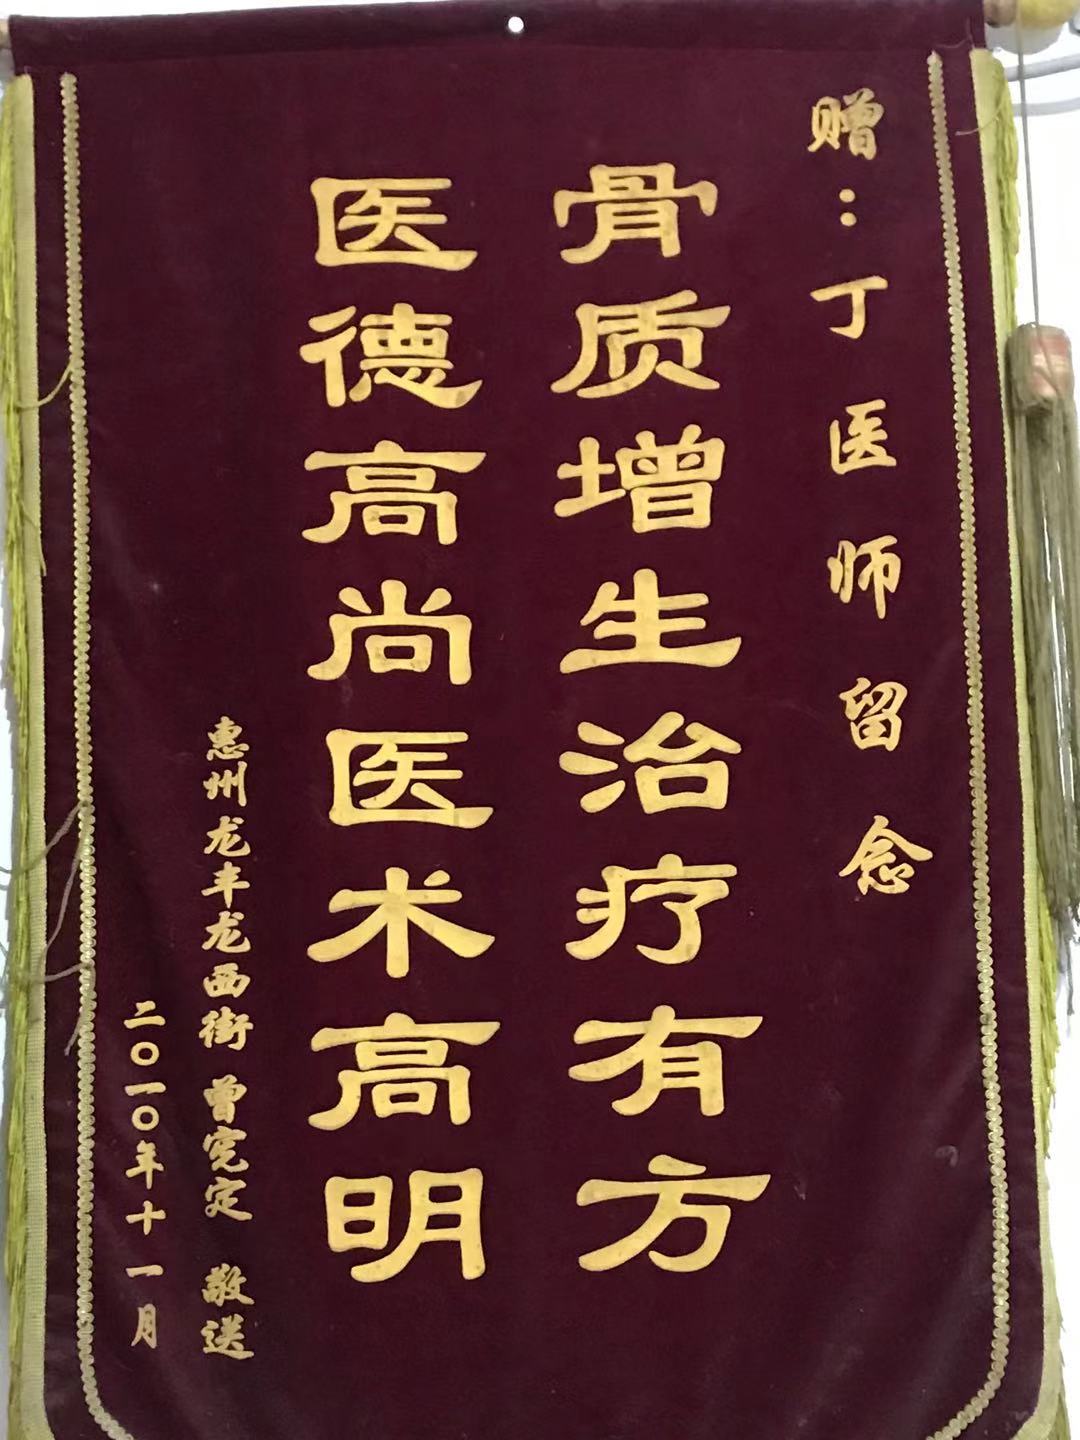 赠：丁医师留念
骨质增生治疗有方
医德高尚医术高明
惠州龙丰龙西街 曾宪定 敬送
二〇一〇年十一月